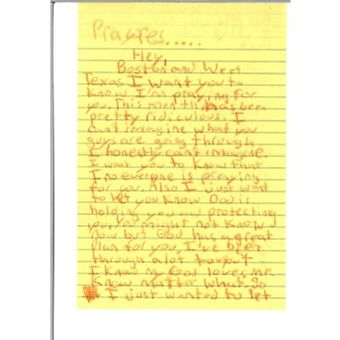 Prayres.....
Hey,
Boston and West
Texas I want you to
know I'm praying for
you. This month has been
pretty ridiculous. I
cant imagine what you
guys are going through
I honestly can't imagine.
I want you to know that
I no everyone is praying
for you. Also I just want
to let you know God is
holding you and protecting
you. You might not know
now but God has a great
plan for you. I've been
through a lot to
I know my God loves me
know matter what. So
I just wanted to let